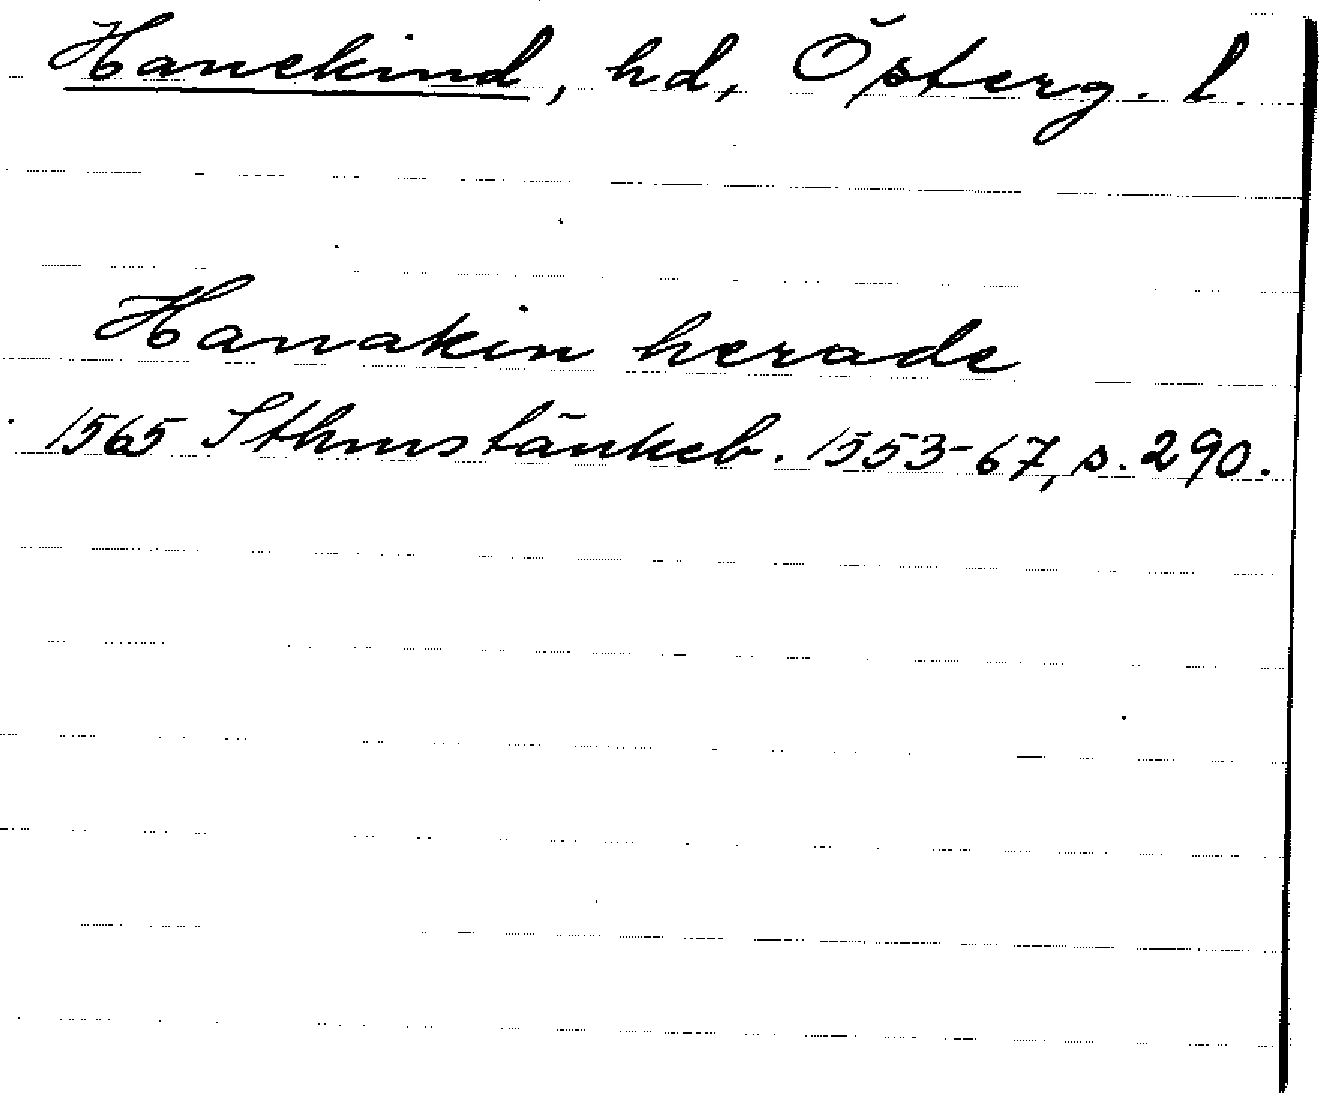 Hanekind, hd, Österg. l
Hanakin herade
1565 Sthms tänkeb. 1553-67, s. 290.